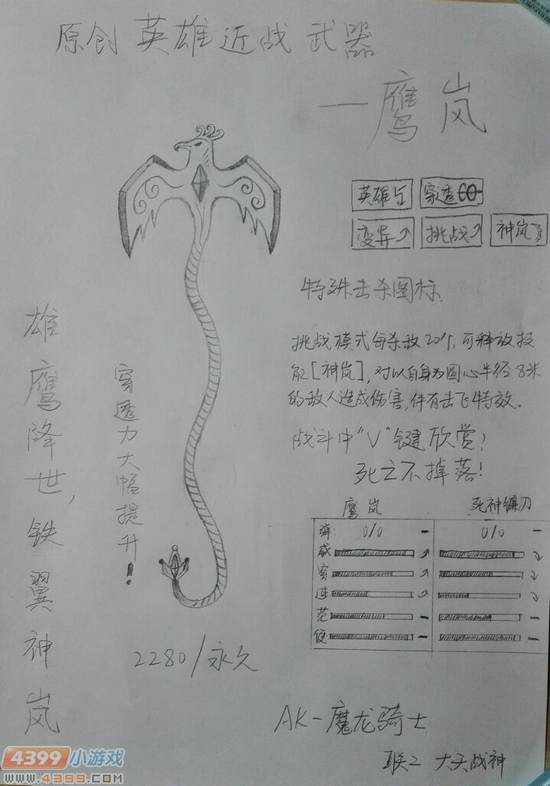 原创英雄近战武器
—鹰岚
英雄 穿透
变异 挑战 神岚
特殊击杀图标
挑战模式每杀敌20个,可释放技
能[神岚],对以自身为圆心半径8米
的敌人造成伤害,伴有击飞特效。
战斗中"V"键欣赏!
死亡不掉落!
雄鹰降世,铁翼神岚
穿透力大幅提升!
2280/永久
鹰岚 死神镰刀
弹 0/0 - 0/0 -
威
穿
速
范 - -
便 - -
AK-魔龙骑士
联二 大天战神
4399小游戏
www.4399.com